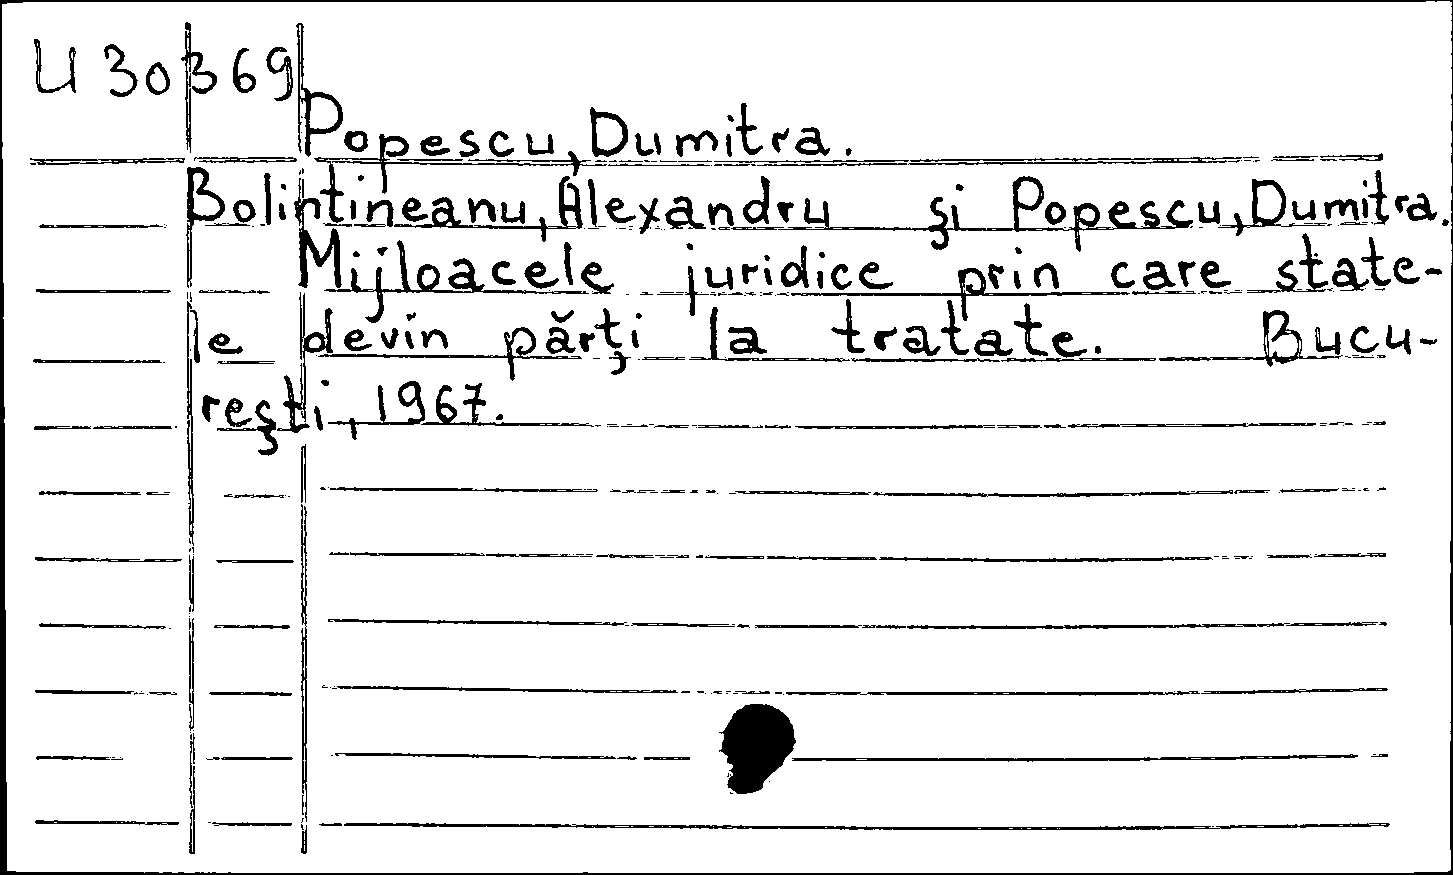 U 30369
Popescu, Dumitra.
Bolintineanu, Alexandru și Popescu, Dumitra.
Mijloacele juridice prin care state-
le devin părți la tratate. Bucu-
rești, 1967.